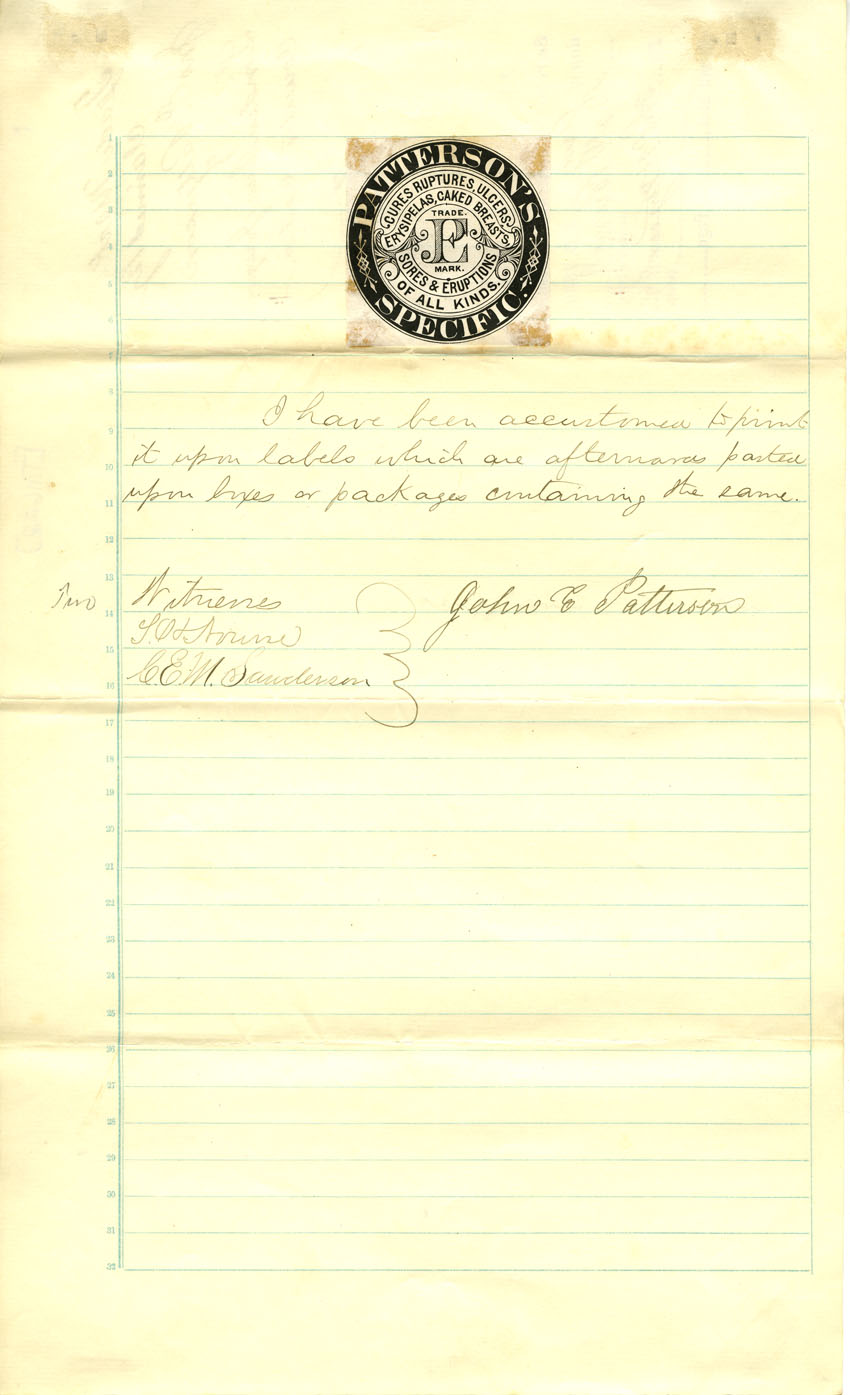 PATTERSON'S
CURES RUPTURES, ULCERS,
ERYSIPELAS, CAKED BREASTS,
TRADE.
MARK.
SORES & ERUPTIONS
OF ALL KINDS.
SPECIFIC.
I have been accustomed to print
it upon labels which are afterwards pasted
upon boxes or packages containing the same.
Two Witnesses John E Patterson
C.E.M. Sanderson
1
2
3
4
5
6
7
8
9
10
11
12
13
14
15
16
17
18
19
20
21
22
23
24
25
26
27
28
29
30
31
32